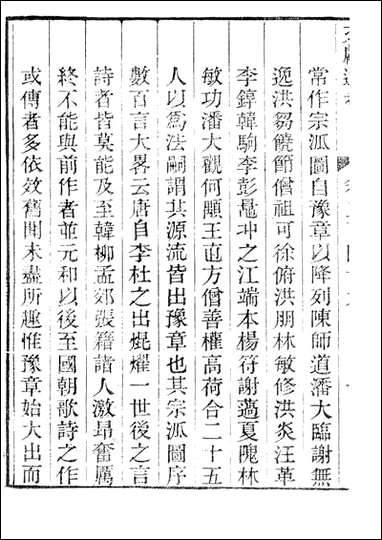 常作宗派圖自豫章以降列陳師道潘大臨謝無
逸洪芻饒節僧祖可徐俯洪朋林敏修洪炎汪革
李錞韓駒李彭鼂冲之江端本楊符謝薖夏隗林
敏功潘大觀何顒王直方僧善權高荷合二十五
人以爲法嗣謂其源流皆出豫章也其宗派圖序
數百言大畧云唐自李杜之出焜燿一世後之言
詩者皆莫能及至韓柳孟郊張籍諸人激昂奮厲
終不能與前作者並元和以後至國朝歌詩之作
或傳者多依效舊聞未盡所趣惟豫章始大出而